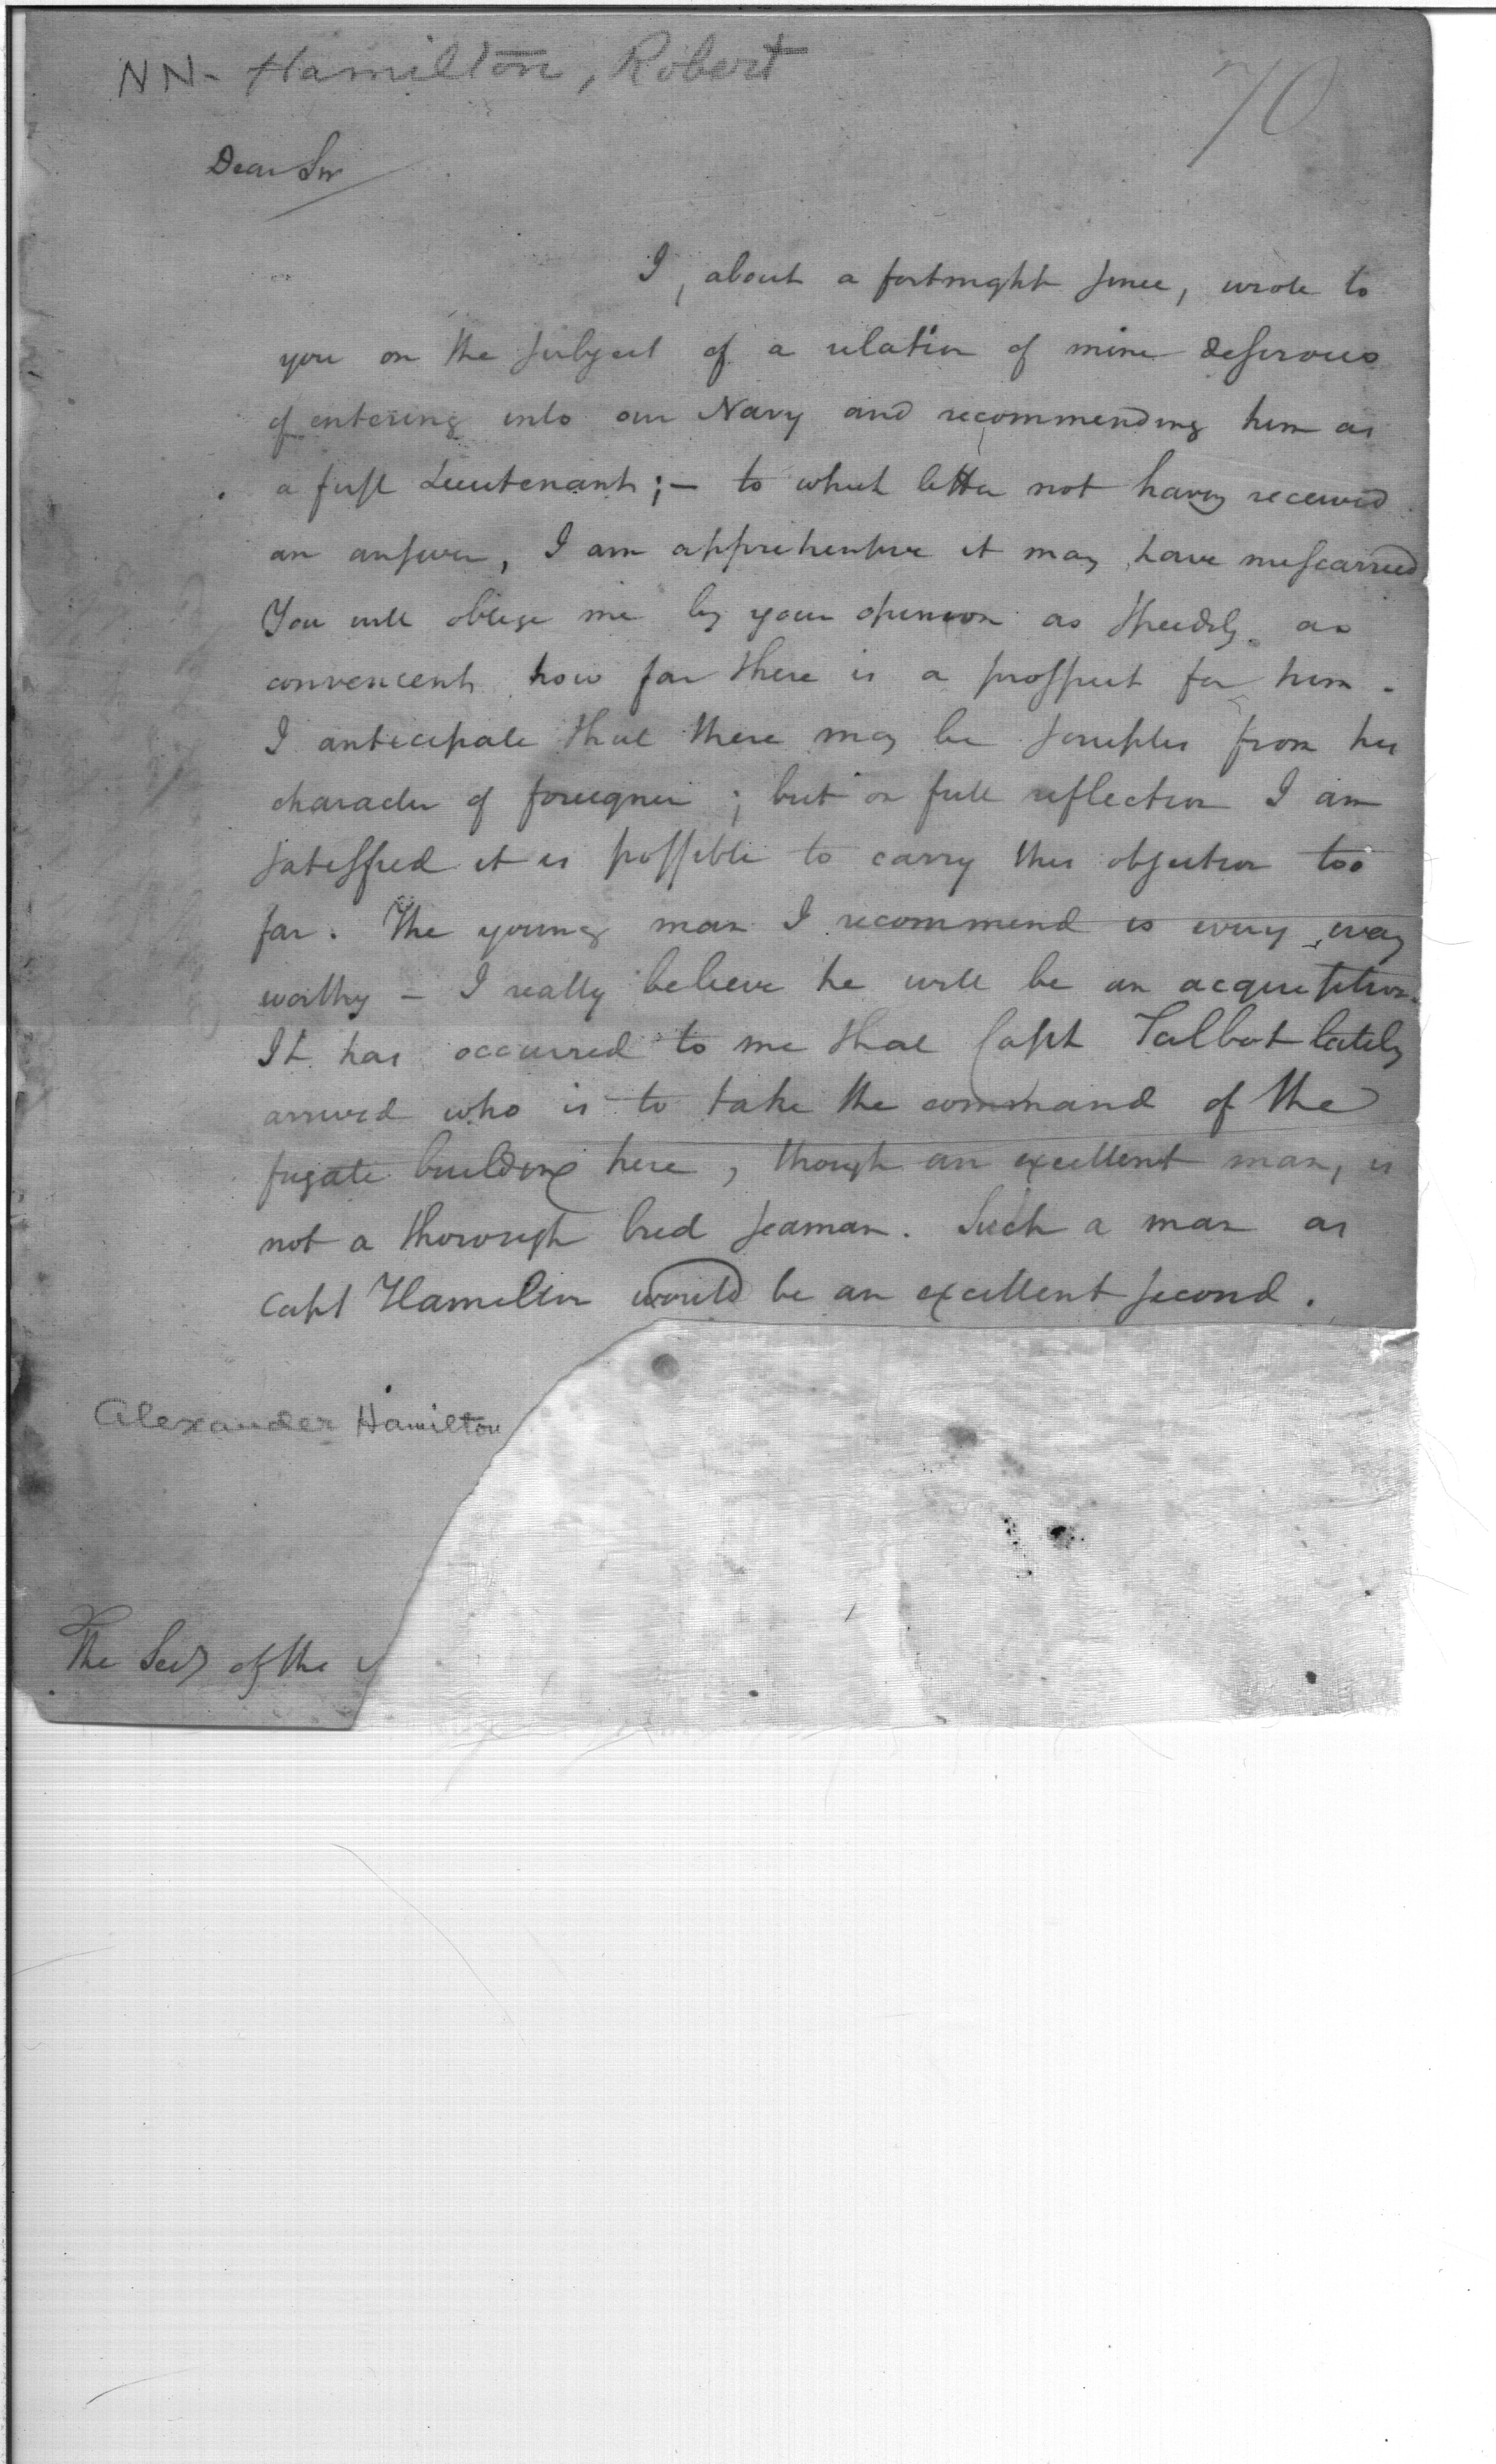 NN- Hamilton, Robert
70
Dear Sir
I, about a fortnight since, wrote to
you on the subject of a relation of mine desirous
of entering into our Navy and recommending him as
a first Lieutenant; — to which letter not having received
an answer, I am apprehensive it may have miscarried
You will oblige me by your opinion as speedily as
convenient how far there is a prospect for him -
I anticipate that there may be scruples from his
character of foreigner; but on full reflection I am
satisfied it is possible to carry this objection too
far. The young man I recommend is every way
worthy - I really believe he will be an acquisition.
It has occurred to me that Capt Talbot lately
arrived who is to take the command of the
frigate building here, though an excellent man, is
not a thorough bred seaman. Such a man as
Capt Hamilton would be an excellent second.
Alexander Hamilton
The Secy of the